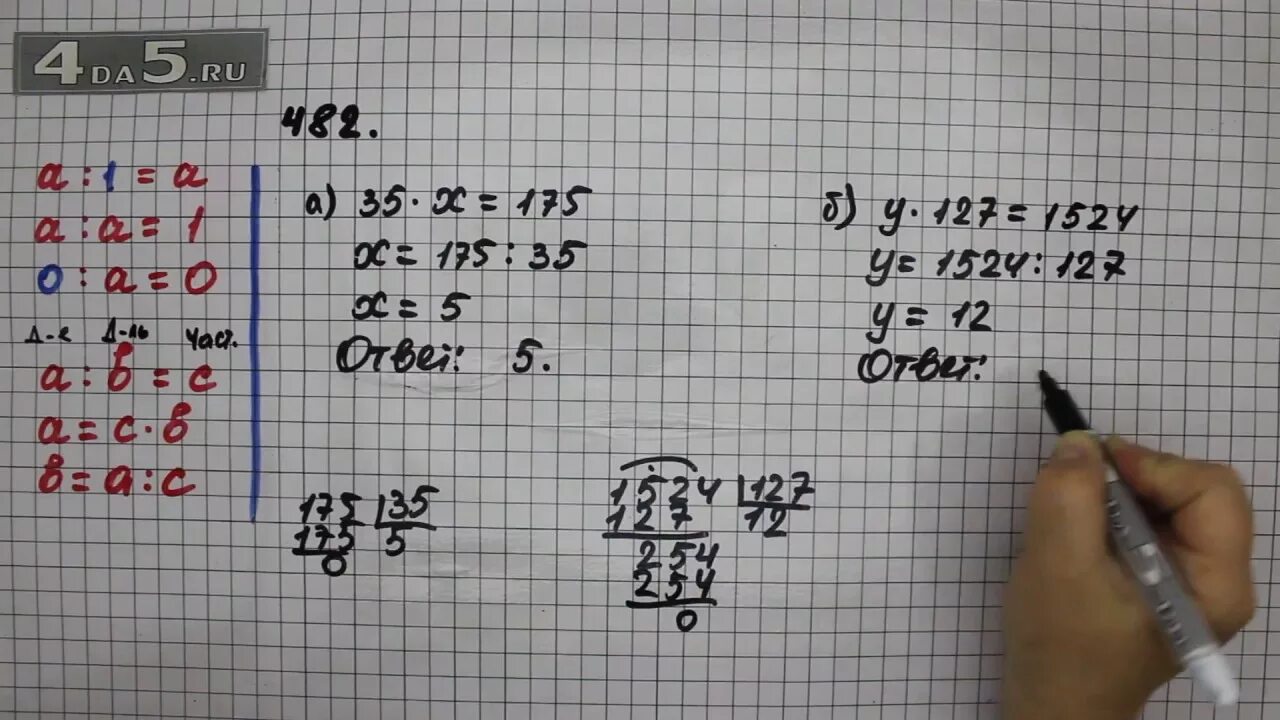 4DA5.RU
482.
a : 1 = a
a : a = 1
0 : a = 0
Д-е Д-ль Част.
a : в = c
a = c · в
в = a : c
а) 35 · x = 175
x = 175 : 35
x = 5
Ответ: 5.
б) y · 127 = 1524
y = 1524 : 127
y = 12
Ответ:
175 35
175 5
0
1524 127
127 12
254
254
0